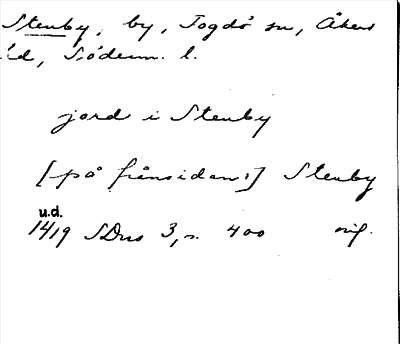 Stenby, by, Togdö sn, Åkers
hd, Söderm. l.
jord i Stenby
[på frånsidan:] Stenby
u.d.
1419 SDns 3, s. 400 orig.